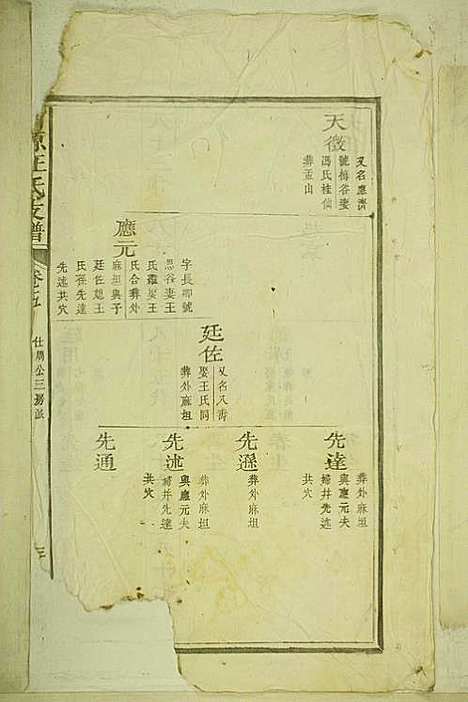 天徵
又名應濟
號梅谷娶
馮氏桂仙
葬孟山
應元
字長卿號
思谷妻王
氏繼娶王
氏合葬外
麻坦與予
廷佐媳王
氏孫先達
先述共穴
廷佐
又名八壽
娶王氏同
葬外麻坦
先達
葬外麻坦
與應元夫
婦并先述
共穴
先遜
葬外麻坦
先述
葬外麻坦
與應元夫
婦并先達
共穴
先通
汪氏支譜
仕鵬公三房派